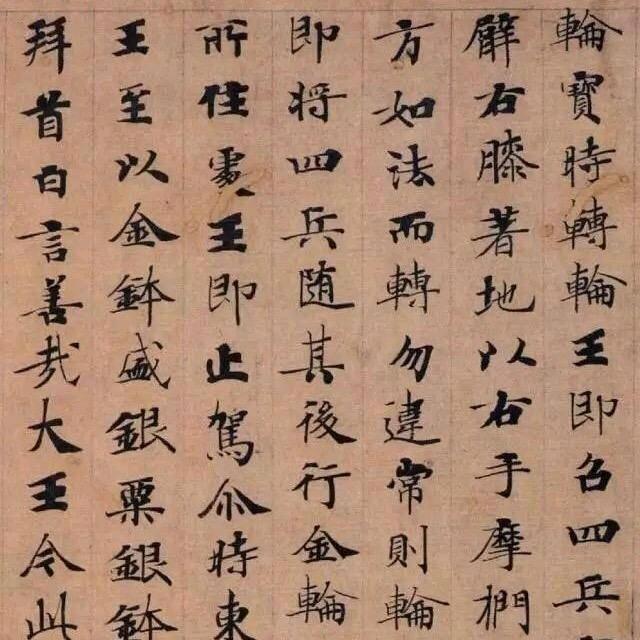 輪寶時轉輪王即召四兵
臂右膝著地以右手摩捫
方如法而轉勿違常則輪
即將四兵随其後行金輪
所住處王即止駕尒時東
王至以金鉢盛銀粟銀鉢
拜首白言善哉大王今此